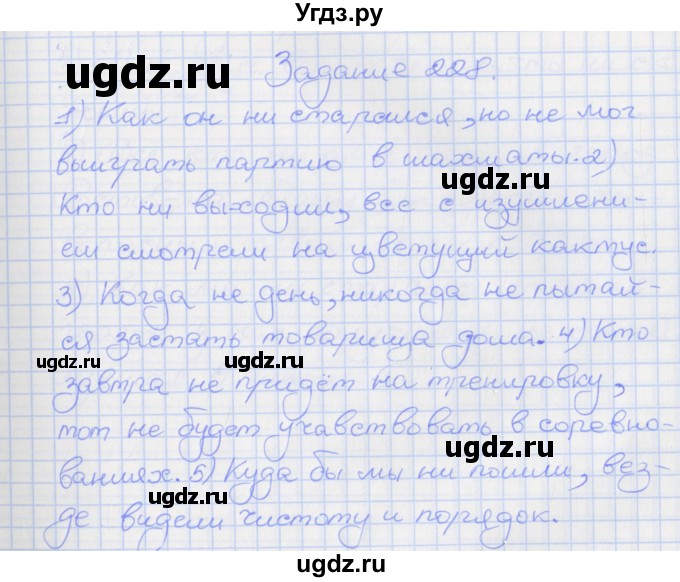 Угдз.ру
ugdz.ru Задание 228.
1) Как он ни старался, но не мог
выиграть партию в шахматы. 2)
ugdz.ru
Кто ни выходил, все с изумлени-
ем смотрели на цветущий кактус.
3) Когда не день, никогда не пытай-
ся застать товарища дома. 4) Кто
ugdz.ru ugdz.ru
завтра не придёт на тренировку,
тот не будет учавствовать в соревно-
ugdz.ru
ваниях. 5) Куда бы мы ни пошли, вез-
ugdz.ru
де видели чистоту и порядок.
ugdz.ru